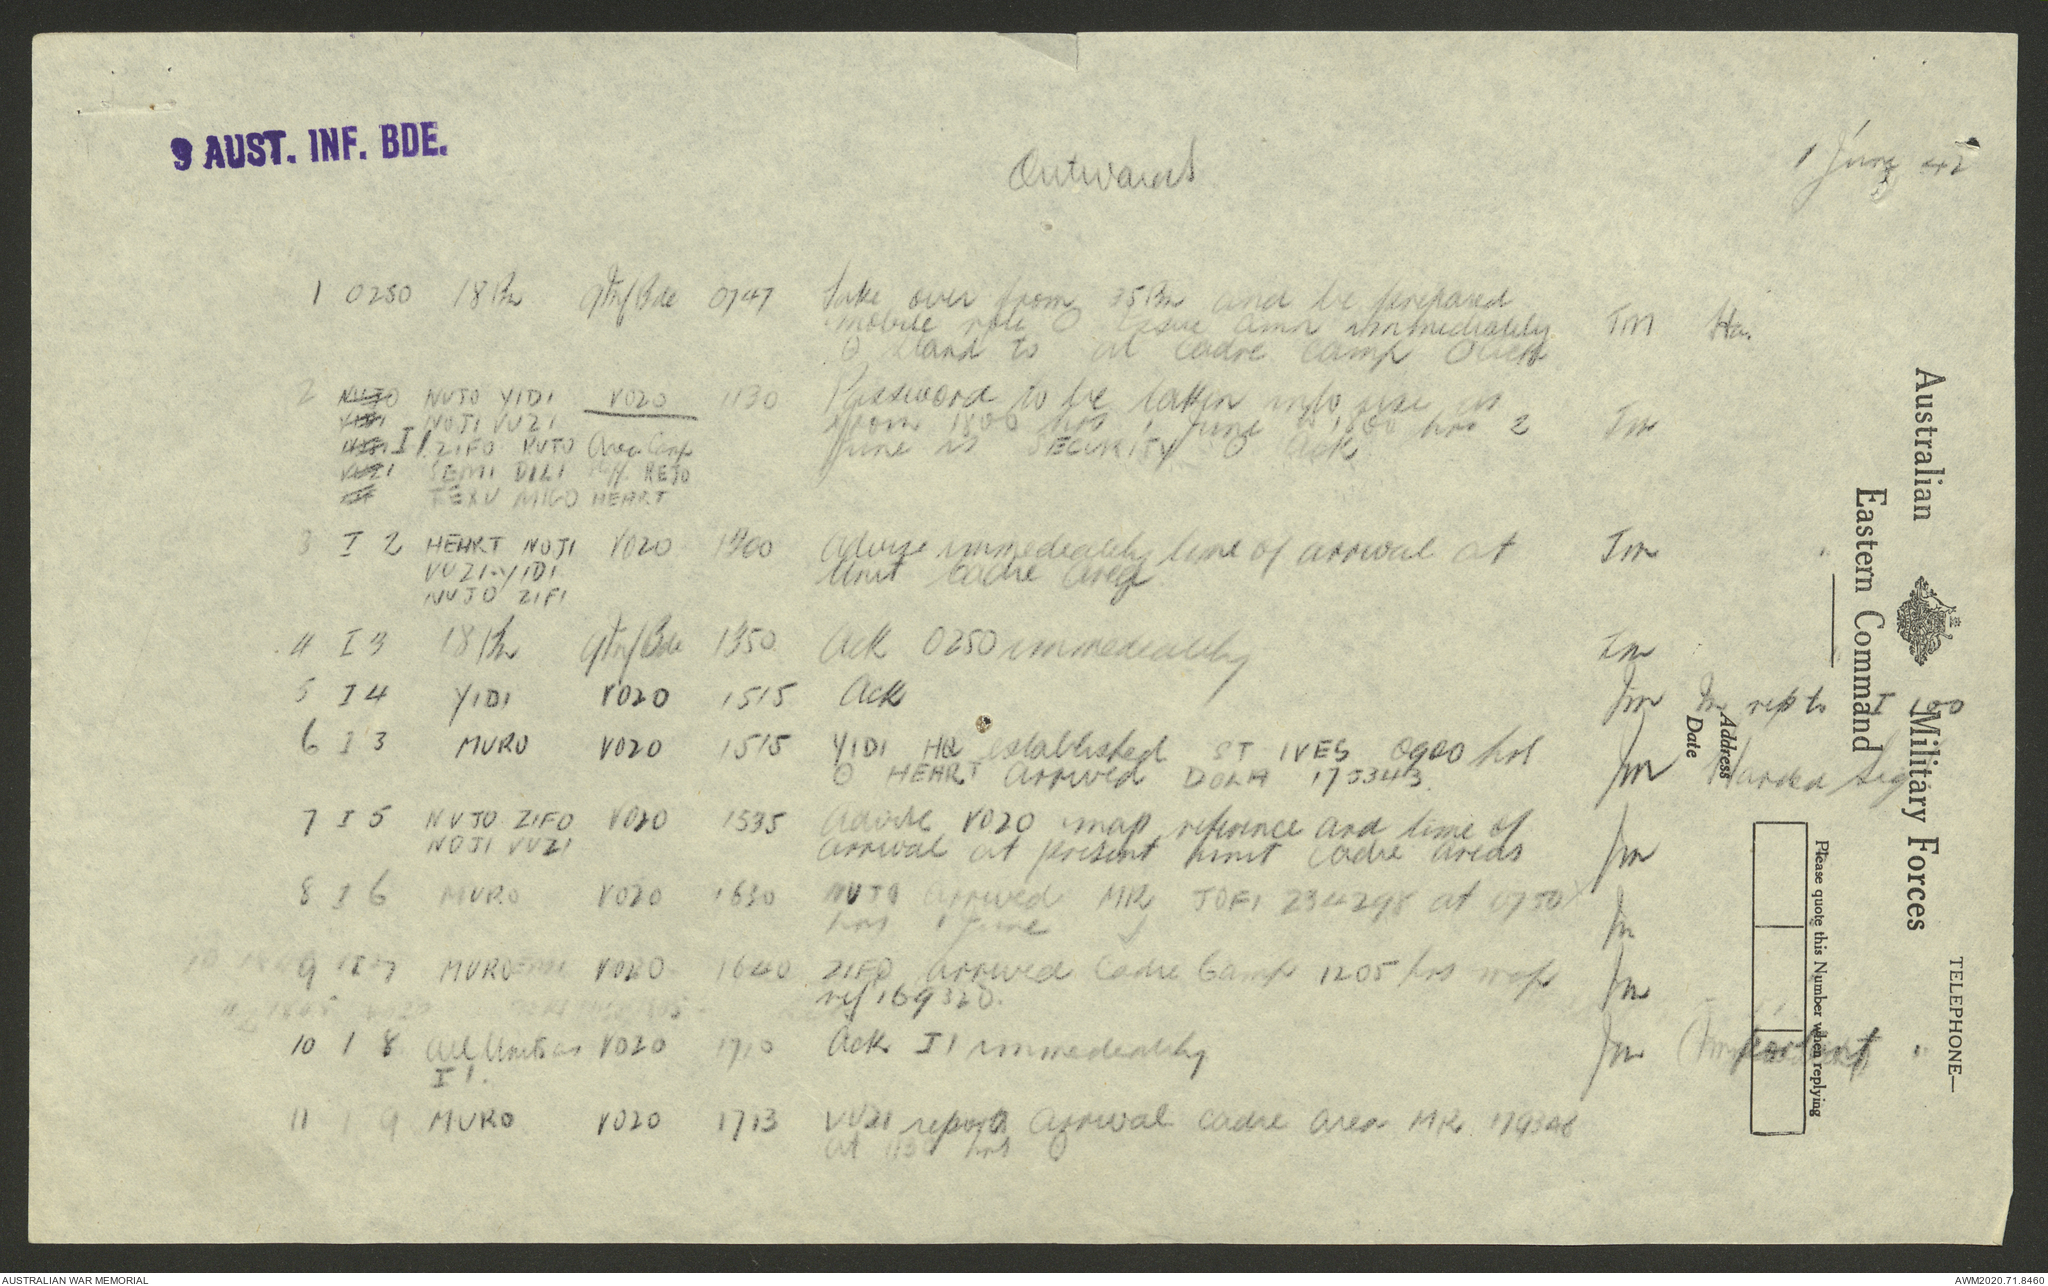 9 AUST. INF. BDE.
Outwards
1 June 42
1 0250 18 Bn 9 Inf Bde 0747 Take over from 35 Bn and be prepared
mobile role O Issue amn immediately TM Ha.
O Stand to at cadre camp
2 NUJO YIDI VO20 1130 Password to be taken into use as
NOJI VUZI from 1800 hrs 1 June to 1800 hrs 2 Jm
I 1 ZIFO June is SECURITY O Ack
SEMI REJO
MIGO HEART
3 I 2 HEART NOJI VO20 1300 Advise immediately time of arrival at Jm
VUZI YIDI Unit Cadre Area
NUJO ZIFI
4 I 3 18 Bn 9 Inf Bde 1350 Ack 0250 immediately Jm
5 I 4 YIDI VO20 1515 Ack Jm
6 I 3 MURO VO20 1515 YIDI HQ established ST IVES 0900 hrs
O HEART arrived Jm
7 I 5 NUJO ZIFO VO20 1535 Advise VO20 map reference and time of
NOJI VUZI arrival at present unit cadre areas Jm
8 I 6 MURO VO20 1630 NUJO arrived MR JOFI 234298 at
hrs 1 June Jm
9 I 7 MURO VO20 1640 ZIFO arrived Cadre Camp 1205 hrs map Jm
ref 169320.
10 I 8 All Units as VO20 1710 Ack I 1 immediately Jm (Important)
I 1.
11 I 9 MURO VO20 1713 VUZI report arrival cadre area MR
at hrs O
Australian Military Forces
Eastern Command
TELEPHONE—
Address
Date
Please quote this Number when replying
AUSTRALIAN WAR MEMORIAL
AWM2020.71.8460